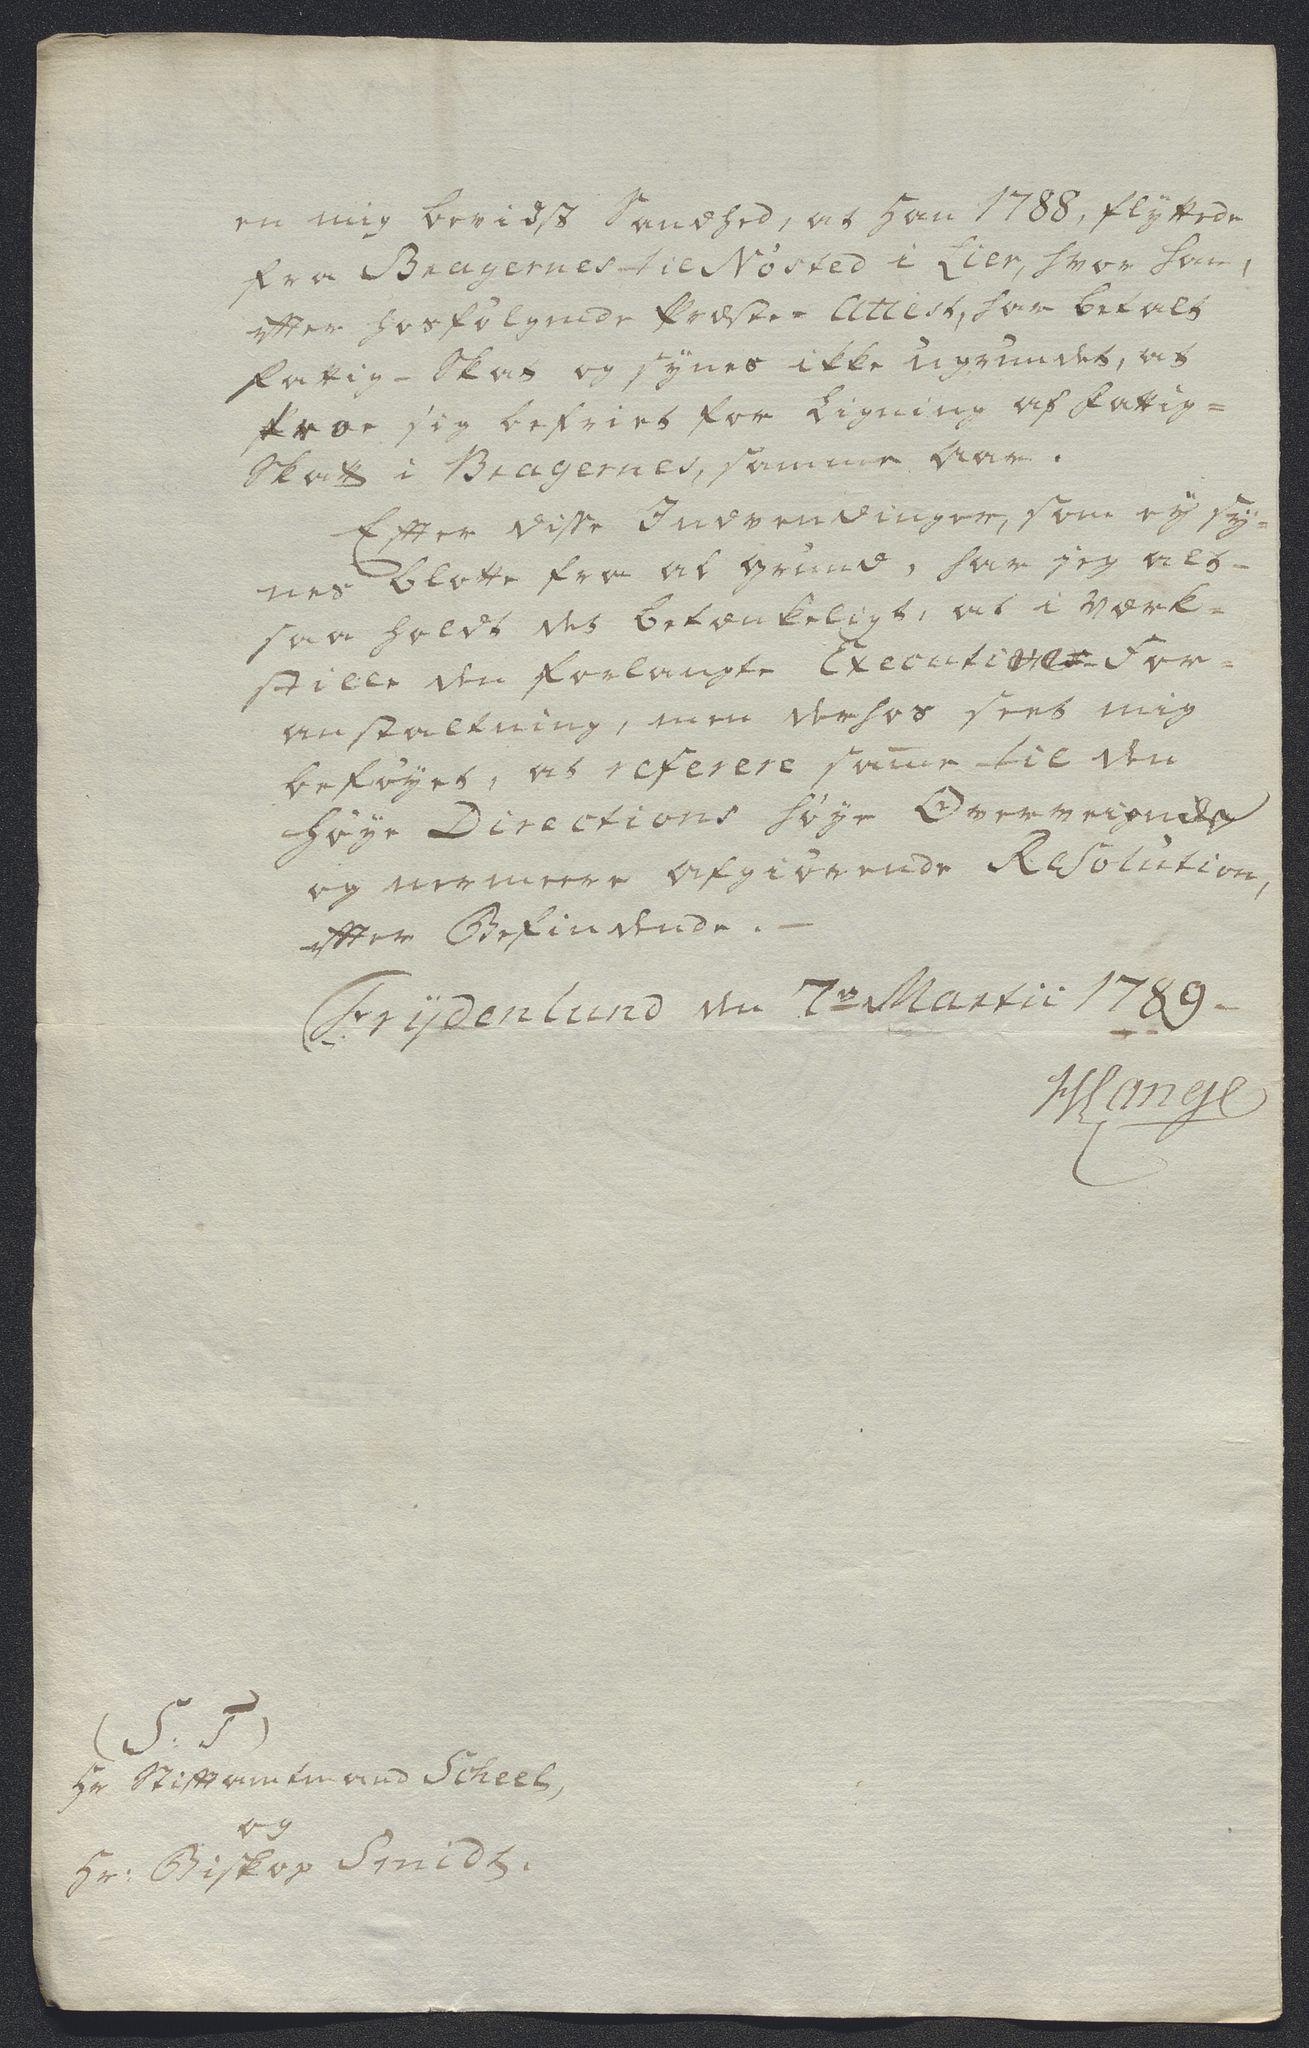 en mig bevidst Sandhed, at han 1788, flyttede
fra Bragernes til Nøsted i Lier, hvor han,
efter hosfølgende Præste-Attest, har betalt
fattig-Skat og synes ikke ugrundet, at
troe sig befriet for Ligning af fattig=
Skatt i Bragernes, samme Aar.
Efter disse Indvendinger, som ey sy=
nes blotte fra al grund, har jeg alt-
saa holdt det betænkeligt, at i værk=
stille den forlangte Executive For=
anstaltning, men derhos seet mig
beføyet, at referere same til den
høye Directions høye Overveiende
og nermeere afgiørende Resolution,
efter Befindende. —
Frydenlund den 7de Martii 1789 -
HLange
(S: T)
Hr Stiftamtmand Scheel,
og
Hr: Biskop Smidt.